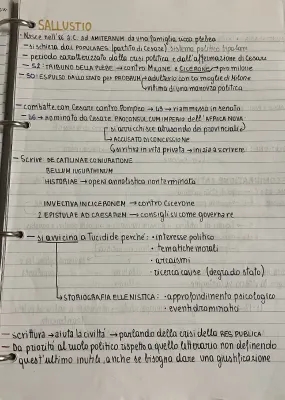 SALLUSTIO
- Nasce nell'86 a.C. ad AMITERNUM da una famiglia ricca plebea
- si schiera dai POPULARES (partito di Cesare)
- periodo caratterizzato dalla crisi politica e dall'affermazione di Cesare
- 52: TRIBUNO DELLA PLEBE → contro MILONE e CICERONE → pro milone
- 50: ESPULSO DALLO STATO per PROBRUM → adulterio con la moglie di Milone
→ vittima di una manovra politica
- combatte con Cesare contro Pompeo → 49 → riammesso in senato
- 46 → nominato da Cesare PROCONSUL CUM IMPERIO dell'AFRICA NOVA
si arricchisce abusando dei provinciali
→ ACCUSATO DI CONCUSSIONE
→ si ritira in vita privata → inizia a scrivere
- Scrive DE CATILINAE CONIURATIONE
BELLUM IUGURTHINUM
HISTORIAE → opera annalistica non terminata
INVECTIVA IN CICERONEM → contro Cicerone
2 EPISTULAE AD CAESAREM → consigli su come governare
- si avvicina a Tucidide perché: · interesse politico
· tematiche morali
· arcaismi
· ricerca cause (degrado stato)
→ STORIOGRAFIA ELLENISTICA: · approfondimento psicologico
· eventi drammatici
- scrittura → aiuta la civiltà → parlando della crisi della RES PUBLICA
- Da priorità al ruolo politico rispetto a quello letterario non definendo
quest'ultimo inutile, anche se bisogna dare una giustificazione